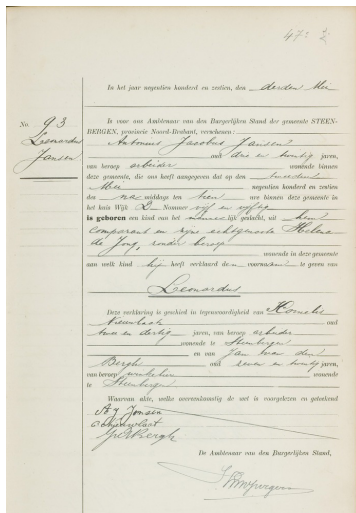 47
In het jaar negentien honderd en zestien, den derden Mei
No. 93
Leonardus
Jansen
In voor ons Ambtenaar van den Burgerlijken Stand der gemeente STEEN-
BERGEN, provincie Noord-Brabant, verschenen:
Antonius Jacobus Jansen
oud drie en jaren,
van beroep arbeider wonende binnen
deze gemeente, die ons heeft aangegeven dat op den tweeden
Mei negentien honderd en zestien
des na middags te ure binnen deze gemeente in
het huis Wijk Nommer vijf en vijftig
is geboren een kind van het lijk geslacht, uit hem
comparant en zijne echtgenoote Helena
de Jong, zonder beroep
wonende in deze gemeente
aan welk kind hij heeft verklaard den voornaam te geven van
Leonardus
Deze verklaring is geschied in tegenwoordigheid van Kornelis
Nieuwlaat oud
twee en dertig jaren, van beroep arbeider
wonende te Steenbergen
en van Jan van den
Bergh oud jaren,
van beroep winkelier wonende
te Steenbergen
Waarvan akte, welke overeenkomstig de wet is voorgelezen en geteekend
A J Jansen
C Nieuwlaat
Bergh
De Ambtenaar van den Burgerlijken Stand,